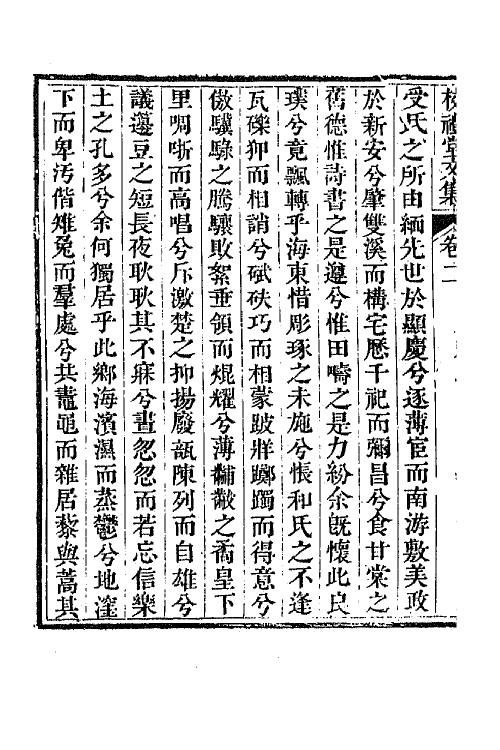 校禮堂文集 卷二
受氏之所由緬先世於顯慶兮逐薄宦而南游敷美政
於新安兮肇雙溪而構宅歷千祀而彌昌兮食甘棠之
舊德惟詩書之是遵兮惟田疇之是力紛余旣懷此良
璞兮竟飄轉乎海東惜彫琢之未施兮悵和氏之不逢
瓦礫狎而相誚兮碔砆巧而相蒙跛牂躑躅而得意兮
傲驥騄之騰驤敗絮垂領而焜燿兮薄黼黻之矞皇下
里啁哳而高唱兮斥激楚之抑揚廢瓿陳列而自雄兮
議籩豆之短長夜耿耿其不寐兮晝忽忽而若忘信樂
土之孔多兮余何獨居乎此鄉海濱濕而蒸鬱兮地窪
下而卑汚偕雉兔而羣處兮共鼃黽而雜居藜與蒿其